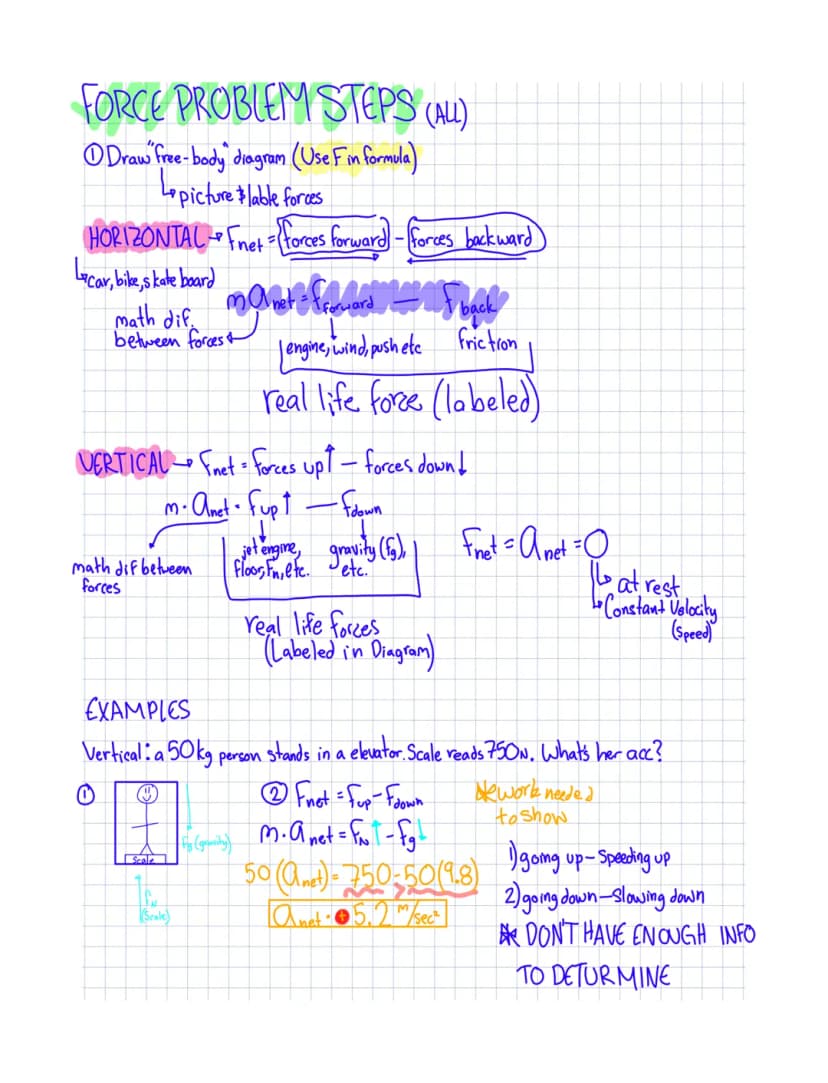 FORCE PROBLEM STEPS (ALL)
① Draw "free-body" diagram (Use F in formula)
↳ picture & lable forces
HORIZONTAL → Fnet = forces forward - forces backward
↳ car, bike, skate board
manet = fforward — Fback
math dif.
between forces
engine, wind, push etc
friction
real life force (labeled)
VERTICAL → Fnet = forces up↑ — forces down↓
m·anet = fup↑ — fdown
math dif between
forces
jet engine,
floor, Fn, etc.
gravity (fg),
etc.
Fnet = anet = 0
↳ at rest
↳ Constant Velocity
(Speed)
real life forces
(Labeled in Diagram)
EXAMPLES
Vertical: a 50kg person stands in a elevator. Scale reads 750N. What's her acc?
①
Scale
Fg (gravity)
fN
(Scale)
② Fnet = fup - Fdown
m·anet = FN↑ - fg↓
50 (anet) = 750-50(9.8)
anet = + 5.2 m/sec²
* work needed
to show
1) going up - Speeding up
2) going down - Slowing down
* DON'T HAVE ENOUGH INFO
TO DETURMINE